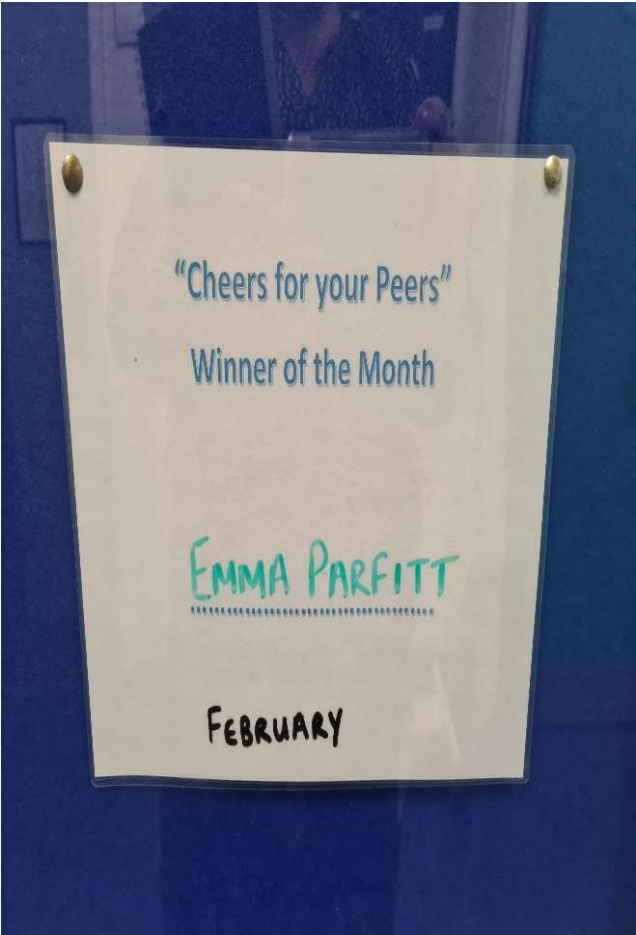 “Cheers for your Peers”
Winner of the Month
EMMA PARFITT
FEBRUARY